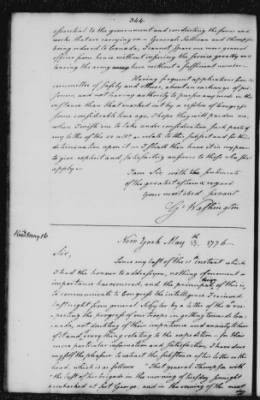 344
essential to the government and conducting the forces and
works that are carrying on. General Sullivan and Thompson
being ordered to Canada, I cannot spare one more general
officer from hence without injuring the service greatly and
leaving the army here without a sufficient number.
Having frequent applications from the
committees of safety and others, about an exchange of pri
soners, and not having authority to pursue any mode in this
instance than that marked out by a resolve of Congress
some considerable time ago. I hope they will pardon me,
when I wish them to take under consideration such parts of
my letter of the as relate to this subject and for their
determination upon it as I shall then have it in my power
to give explicit and satisfactory answers to those who shall
apply.
I am Sir with the sentiments
of the greatest esteem & regard
Your most obed servant
Go Washington
New York May 15. 1776
Sir,
Since my last of the instant which
I had the honour to address you, nothing of moment or
importance has occurred, and the principal of this is,
to communicate to Congress the intelligence I received
last night from general Schuyler by a letter of the
respecting the progress of our troops in getting towards Ca
nada, not doubting of their impatience and anxiety to hear
of it and every thing relating to the expedition, for their
more particular information and satisfaction, I have done
myself the pleasure to extract the substance of his letter on the
head, which is as follows "That general Thompson with
the last of his brigade in the morning of tuesday sennight
embarked at fort George, and in the evening of the next day